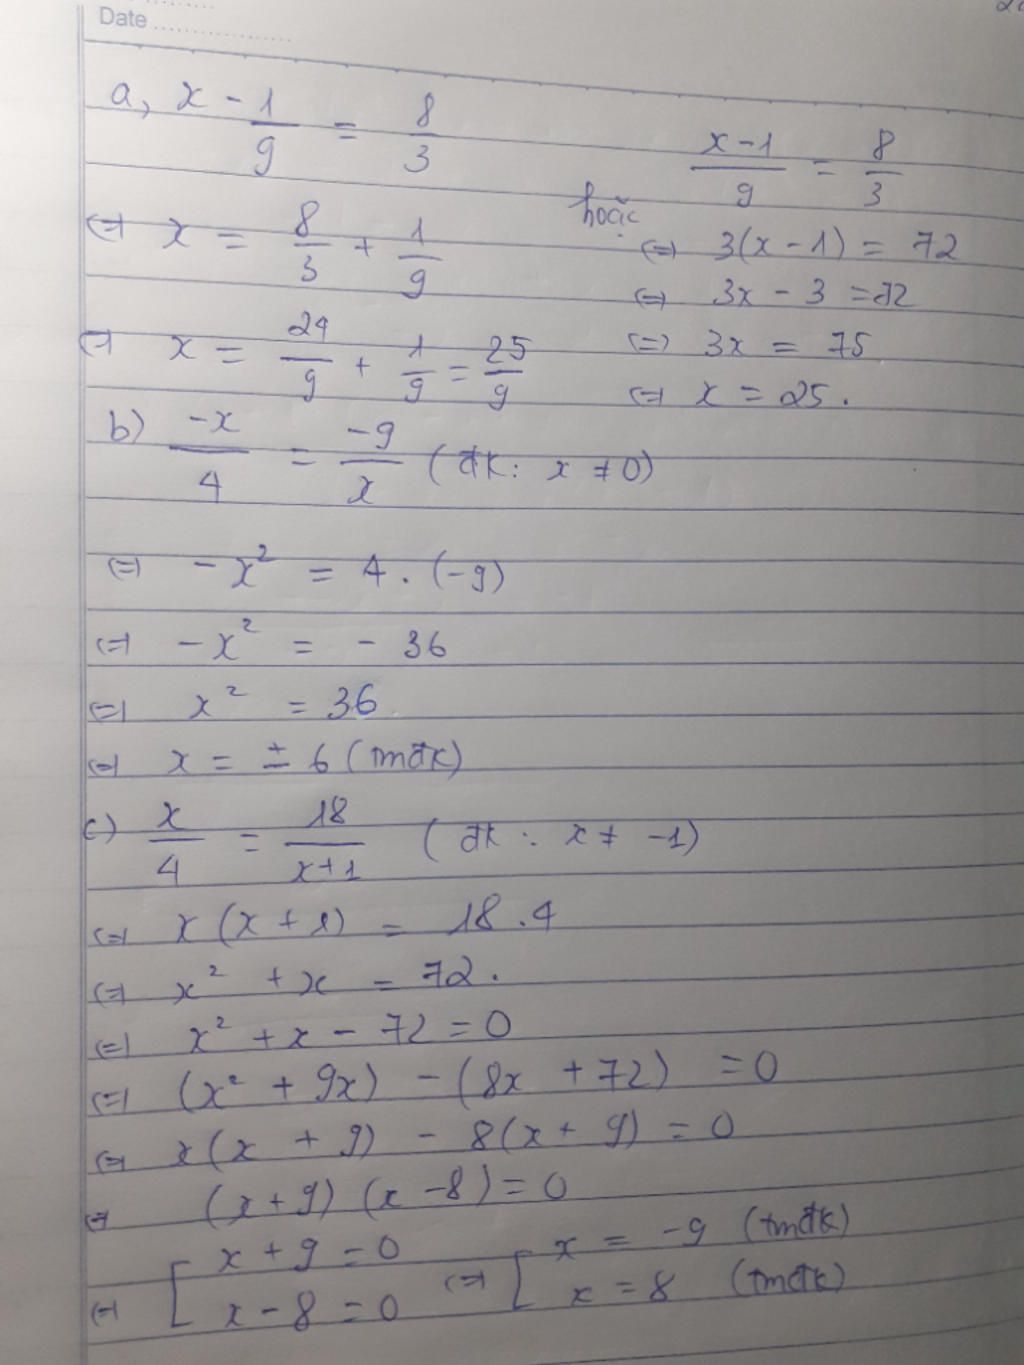 Date
a, x - 1/9 = 8/3
⇔ x = 8/3 + 1/9
⇔ x = 24/9 + 1/9 = 25/9
hoặc
(x-1)/9 = 8/3
⇔ 3(x - 1) = 72
⇔ 3x - 3 = 72
⇔ 3x = 75
⇔ x = 25.
b) -x/4 = -9/x (đk: x ≠ 0)
⇔ -x² = 4. (-9)
⇔ -x² = - 36
⇔ x² = 36
⇔ x = ± 6 (tmđk)
c) x/4 = 18/(x+1) (đk: x ≠ -1)
⇔ x(x + 1) = 18.4
⇔ x² + x = 72.
⇔ x² + x - 72 = 0
⇔ (x² + 9x) - (8x + 72) = 0
⇔ x(x + 9) - 8(x + 9) = 0
⇔ (x + 9) (x - 8) = 0
⇔ [ x + 9 = 0 ⇔ [ x = -9 (tmđk)
x - 8 = 0 x = 8 (tmđk)